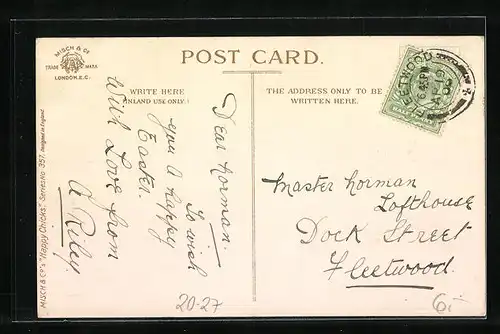 MISCH & Co
TRADE MARK
LONDON.E.C.
POST CARD.
WRITE HERE
(INLAND USE ONLY.)
THE ADDRESS ONLY TO BE
WRITTEN HERE.
Dear Norman.
To wish
you a happy
Easter.
With Love from
A Riley.
MISCH & Co's "Happy Chicks." Series No. 357. Designed in England.
FLEETWOOD
Master Norman
Lofthouse
Dock Street
Fleetwood.
20-27
6.-